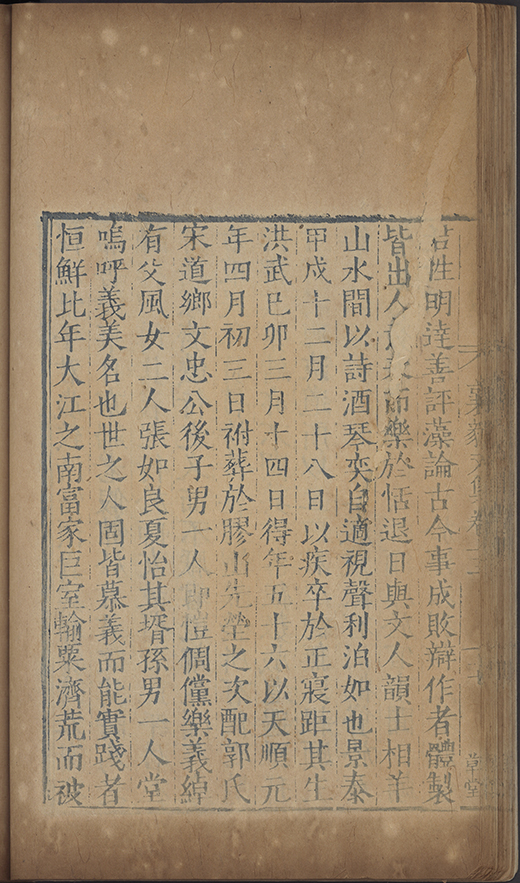 性明達善評藻論古今事成敗辯作者體製
皆出人表而樂於恬退日與文人韻士相羊
山水間以詩酒琴奕自適視聲利泊如也景泰
甲戌十二月二十八日以疾卒於正寢距其生
洪武己卯三月十四日得年五十六以天順元
年四月初三日祔葬於膠山先塋之次配郭氏
宋道鄉文忠公後子男一人即愷倜儻樂義綽
有父風女二人張如良夏怡其壻孫男一人堂
嗚呼義美名也世之人固皆慕義而能實踐者
恒鮮比年大江之南富家巨室輸粟濟荒而被
草堂